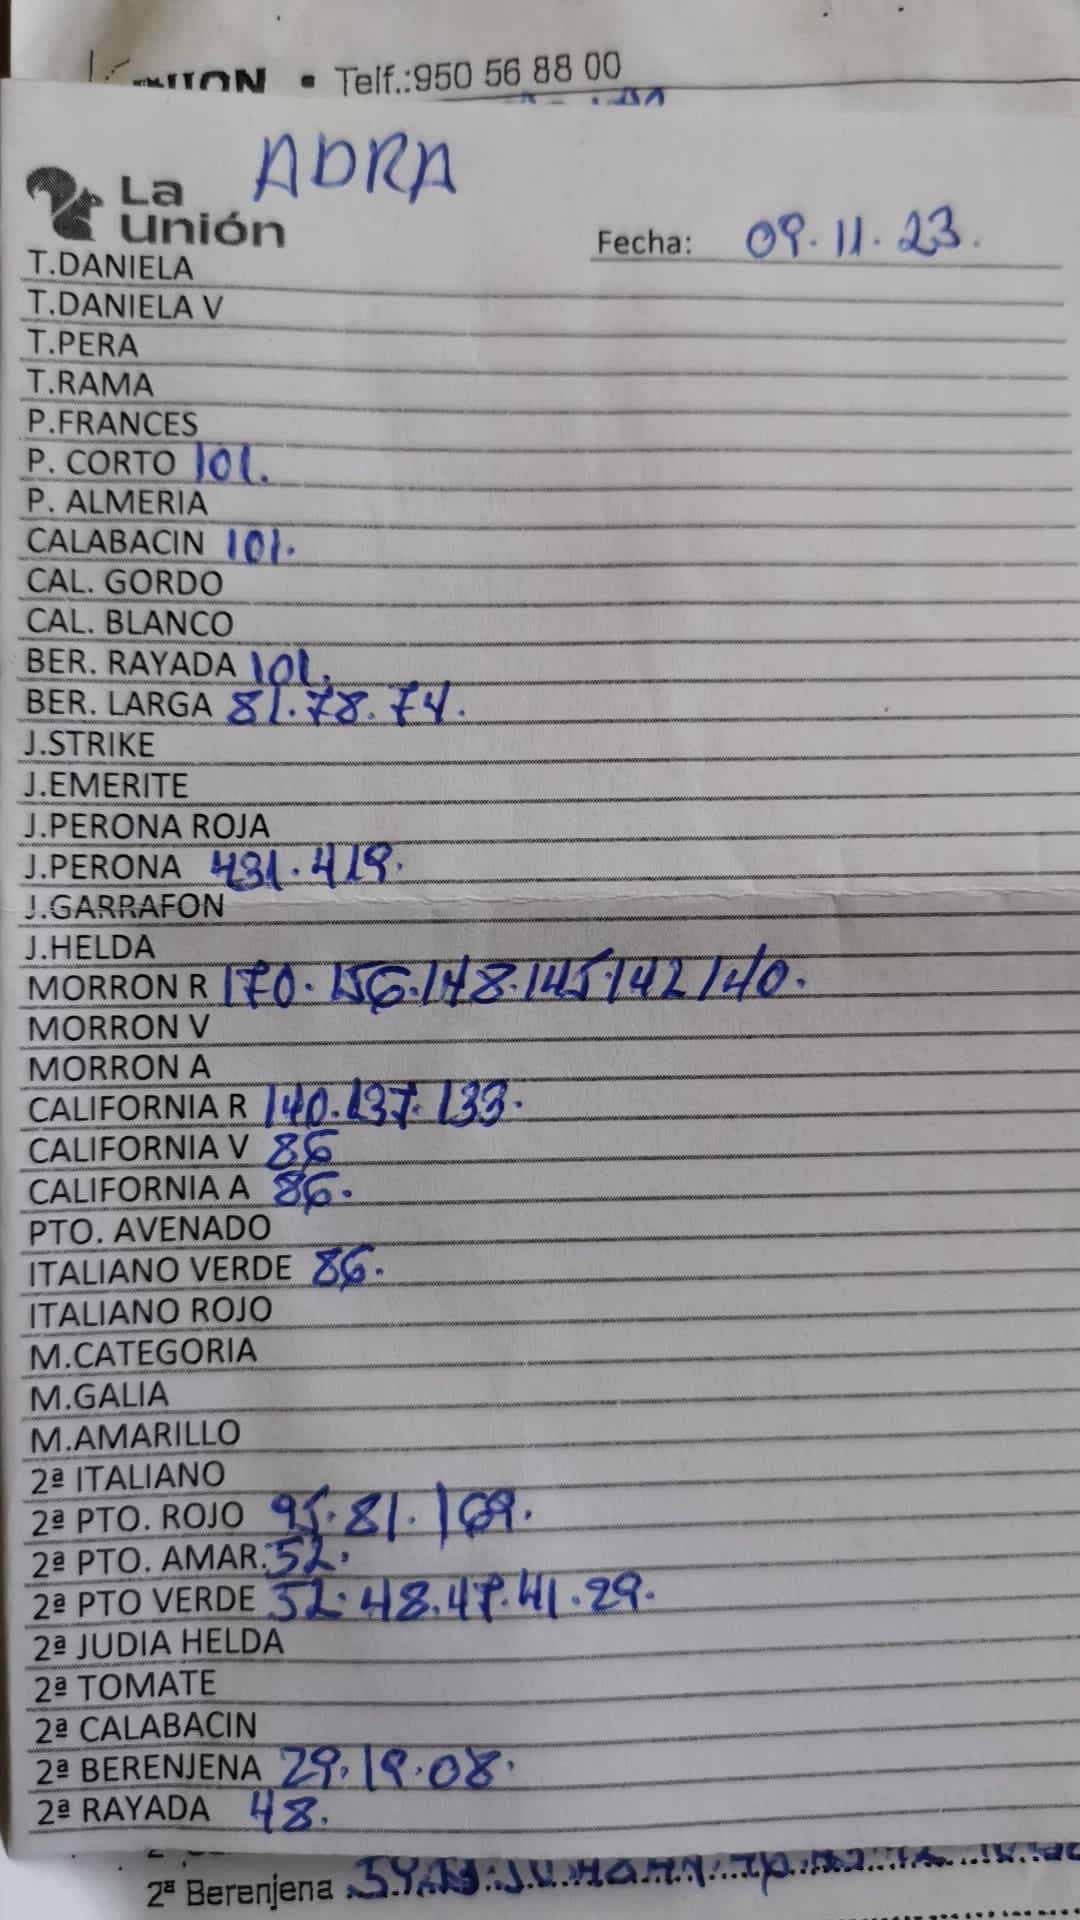 Telf.:950 56 88 00
ADRA
La Unión
Fecha: 09.11.23.
T.DANIELA
T.DANIELA V
T.PERA
T.RAMA
P.FRANCES
P. CORTO 101.
P. ALMERIA
CALABACIN 101.
CAL. GORDO
CAL. BLANCO
BER. RAYADA 101.
BER. LARGA 81.78.74.
J.STRIKE
J.EMERITE
J.PERONA ROJA
J.PERONA 431.419.
J.GARRAFON
J.HELDA
MORRON R 170.156.148.145.142 140.
MORRON V
MORRON A
CALIFORNIA R 140.137.133.
CALIFORNIA V 86
CALIFORNIA A 86.
PTO. AVENADO
ITALIANO VERDE 86.
ITALIANO ROJO
M.CATEGORIA
M.GALIA
M.AMARILLO
2ª ITALIANO
2ª PTO. ROJO 95.81.169.
2ª PTO. AMAR. 52.
2ª PTO VERDE 52.48.47.41.29.
2ª JUDIA HELDA
2ª TOMATE
2ª CALABACIN
2ª BERENJENA 29.19.08.
2ª RAYADA 48.
2ª Berenjena